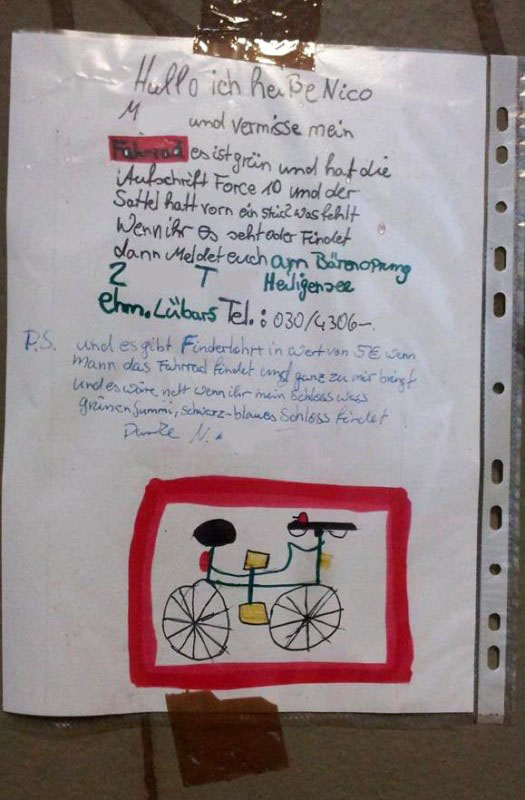 Hallo ich heiße Nico
M
und vermisse mein
Fahrrad es ist grün und hat die
Aufschrift Force 10 und der
Sattel hatt vorn ein stück was fehlt
Wenn ihr es seht oder Findet
dann Meldet euch am Bärensprung
2 T Heiligensee
ehm. Lübars Tel.: 030/4306-
P.S. und es gibt Finderlohn in wert von 5€ wenn
mann das Fahrrad findet und ganz zu mir bringt
und es wäre nett wenn ihr mein Schloss was
grünen gummi, schwarz-blaues Schloss findet
Danke N.